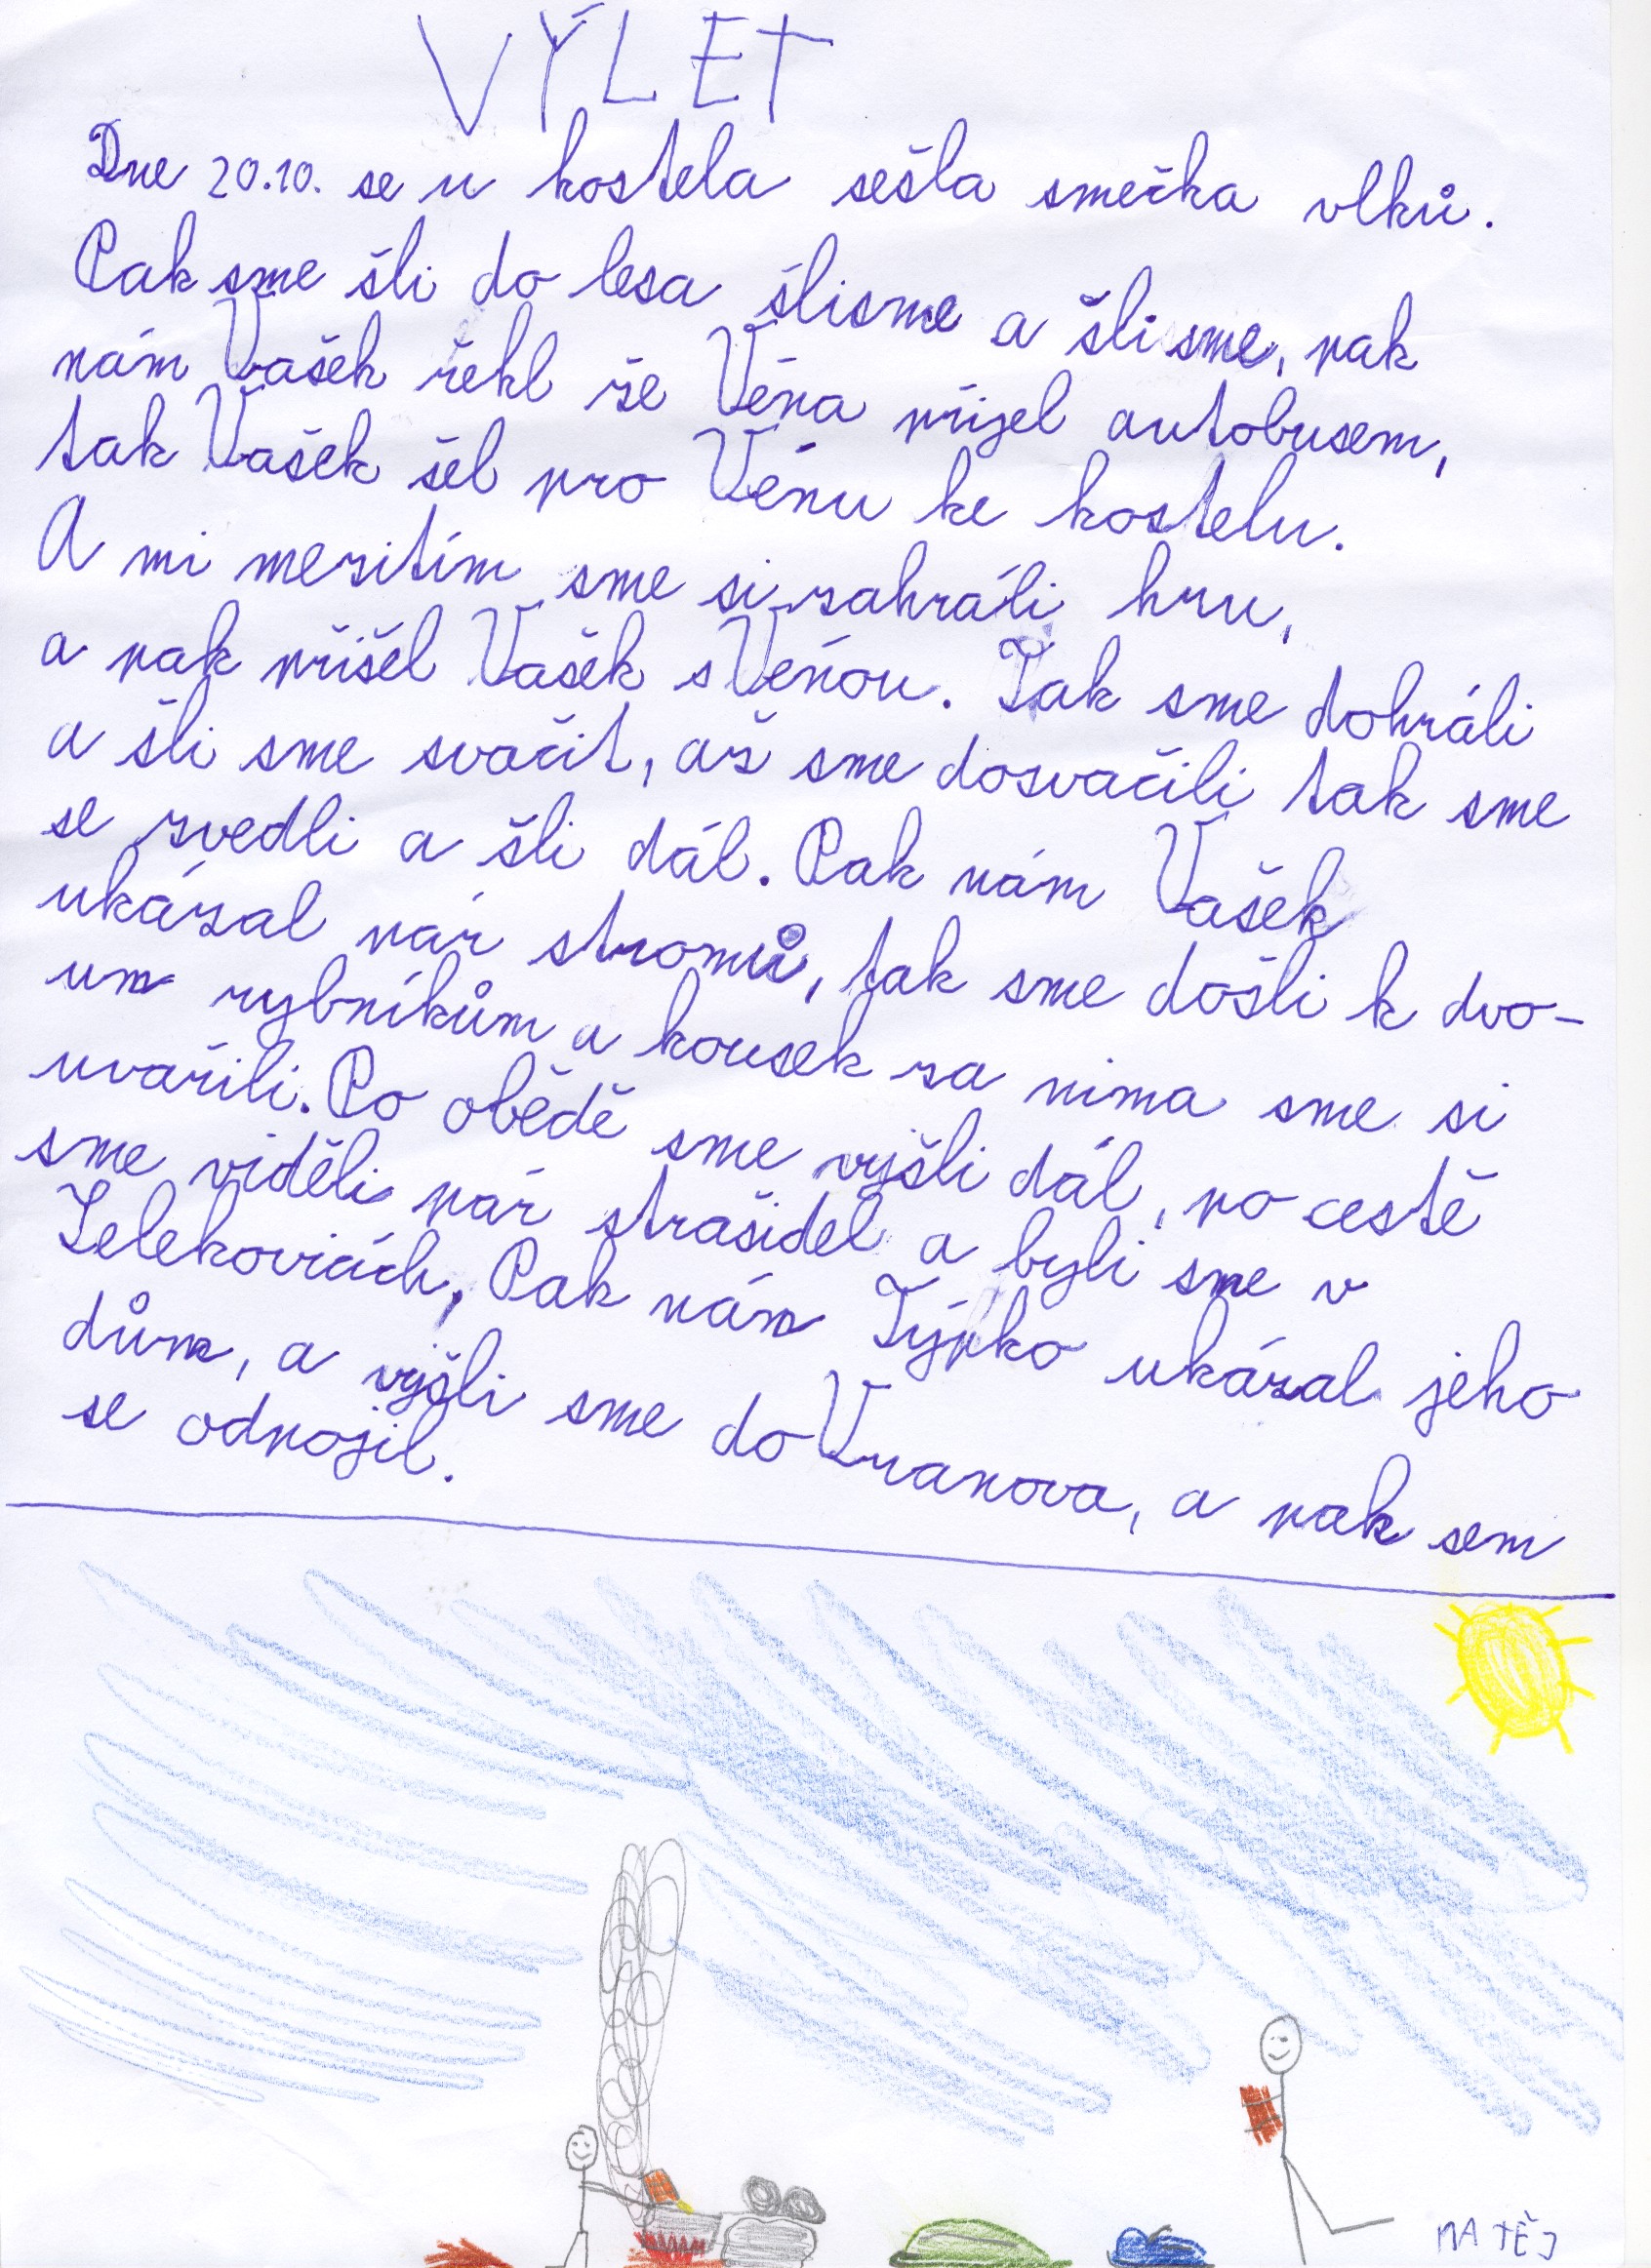 VÝLET
Dne 20.10. se u kostela sešla smečka vlků.
Pak sme šli do lesa šlisme a šli sme, pak
nám Vašek řekl že Véna přijel autobusem,
tak Vašek šel pro Vénu ke kostelu.
A mi mezitím sme si zahráli hru,
a pak přišel Vašek s Vénou. Tak sme dohráli
a šli sme svačit, až sme dosvačili tak sme
se zvedli a šli dál. Pak nám Vašek
ukázal pár stromů, tak sme došli k dvo-
um rybníkům a kousek za nima sme si
uvařili. Po obědě sme vyšli dál, po cestě
sme viděli pár strašidel a byli sme v
Lelekovicích, Pak nám Týpko ukázal jeho
dům, a vyšli sme do Vranova, a pak sem
se odpojil.
MATĚJ